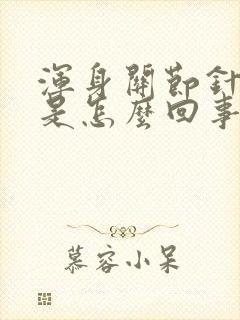 渾身關節針
是怎麼回事
慕容小呆